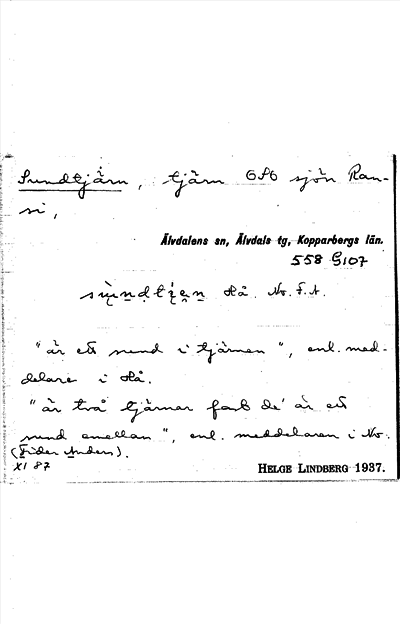 Sundtjärn, tjärn OSO sjön Ran-
si,
Älvdalens sn, Älvdals tg, Kopparbergs län.
558 G107
Hå. No. F.A.
"är ett sund i tjärnen", enl. med-
delare i Hå.
"är två tjärnar fast de' är ett
sund emellan", enl. meddelaren i No.
(Fider Anders).
XI 87
HELGE LINDBERG 1937.